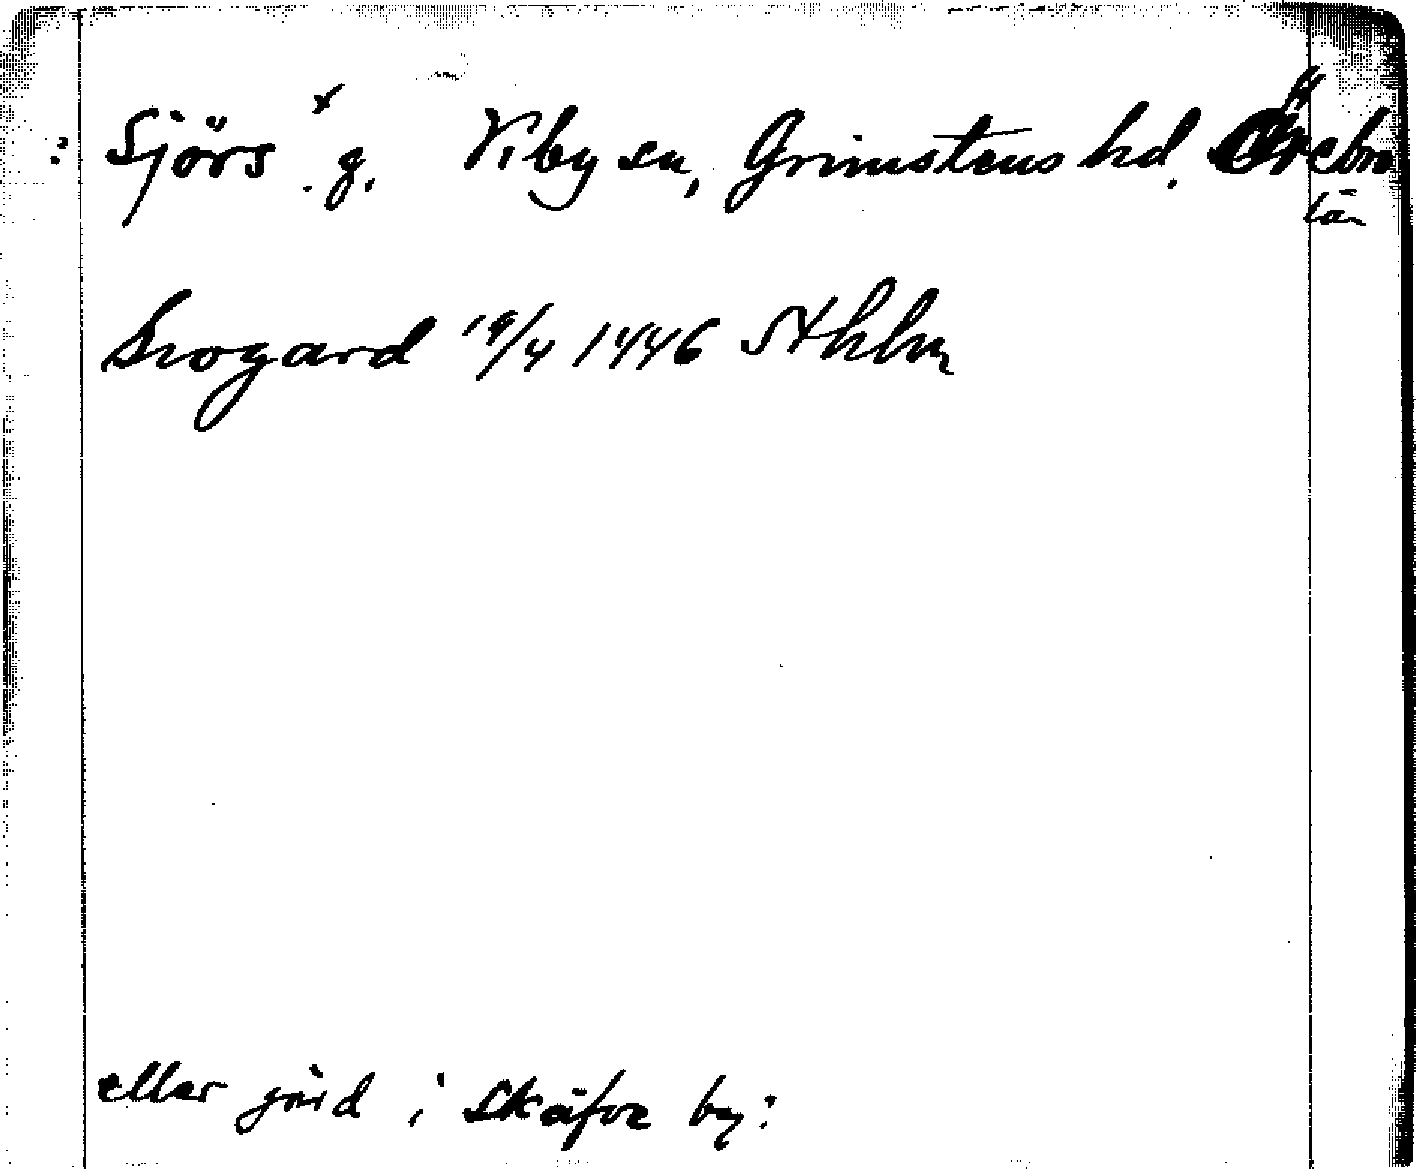 ? Sjörs x g. Viby sn, Grimstens hd. Örebro
län
Siogard 19/4 1446 Sthlm
eller gård i Skäfve by: